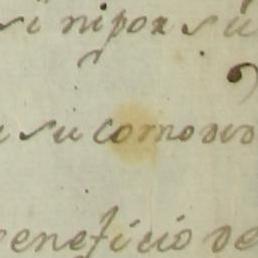 si ni por su
su comodid
beneficio de